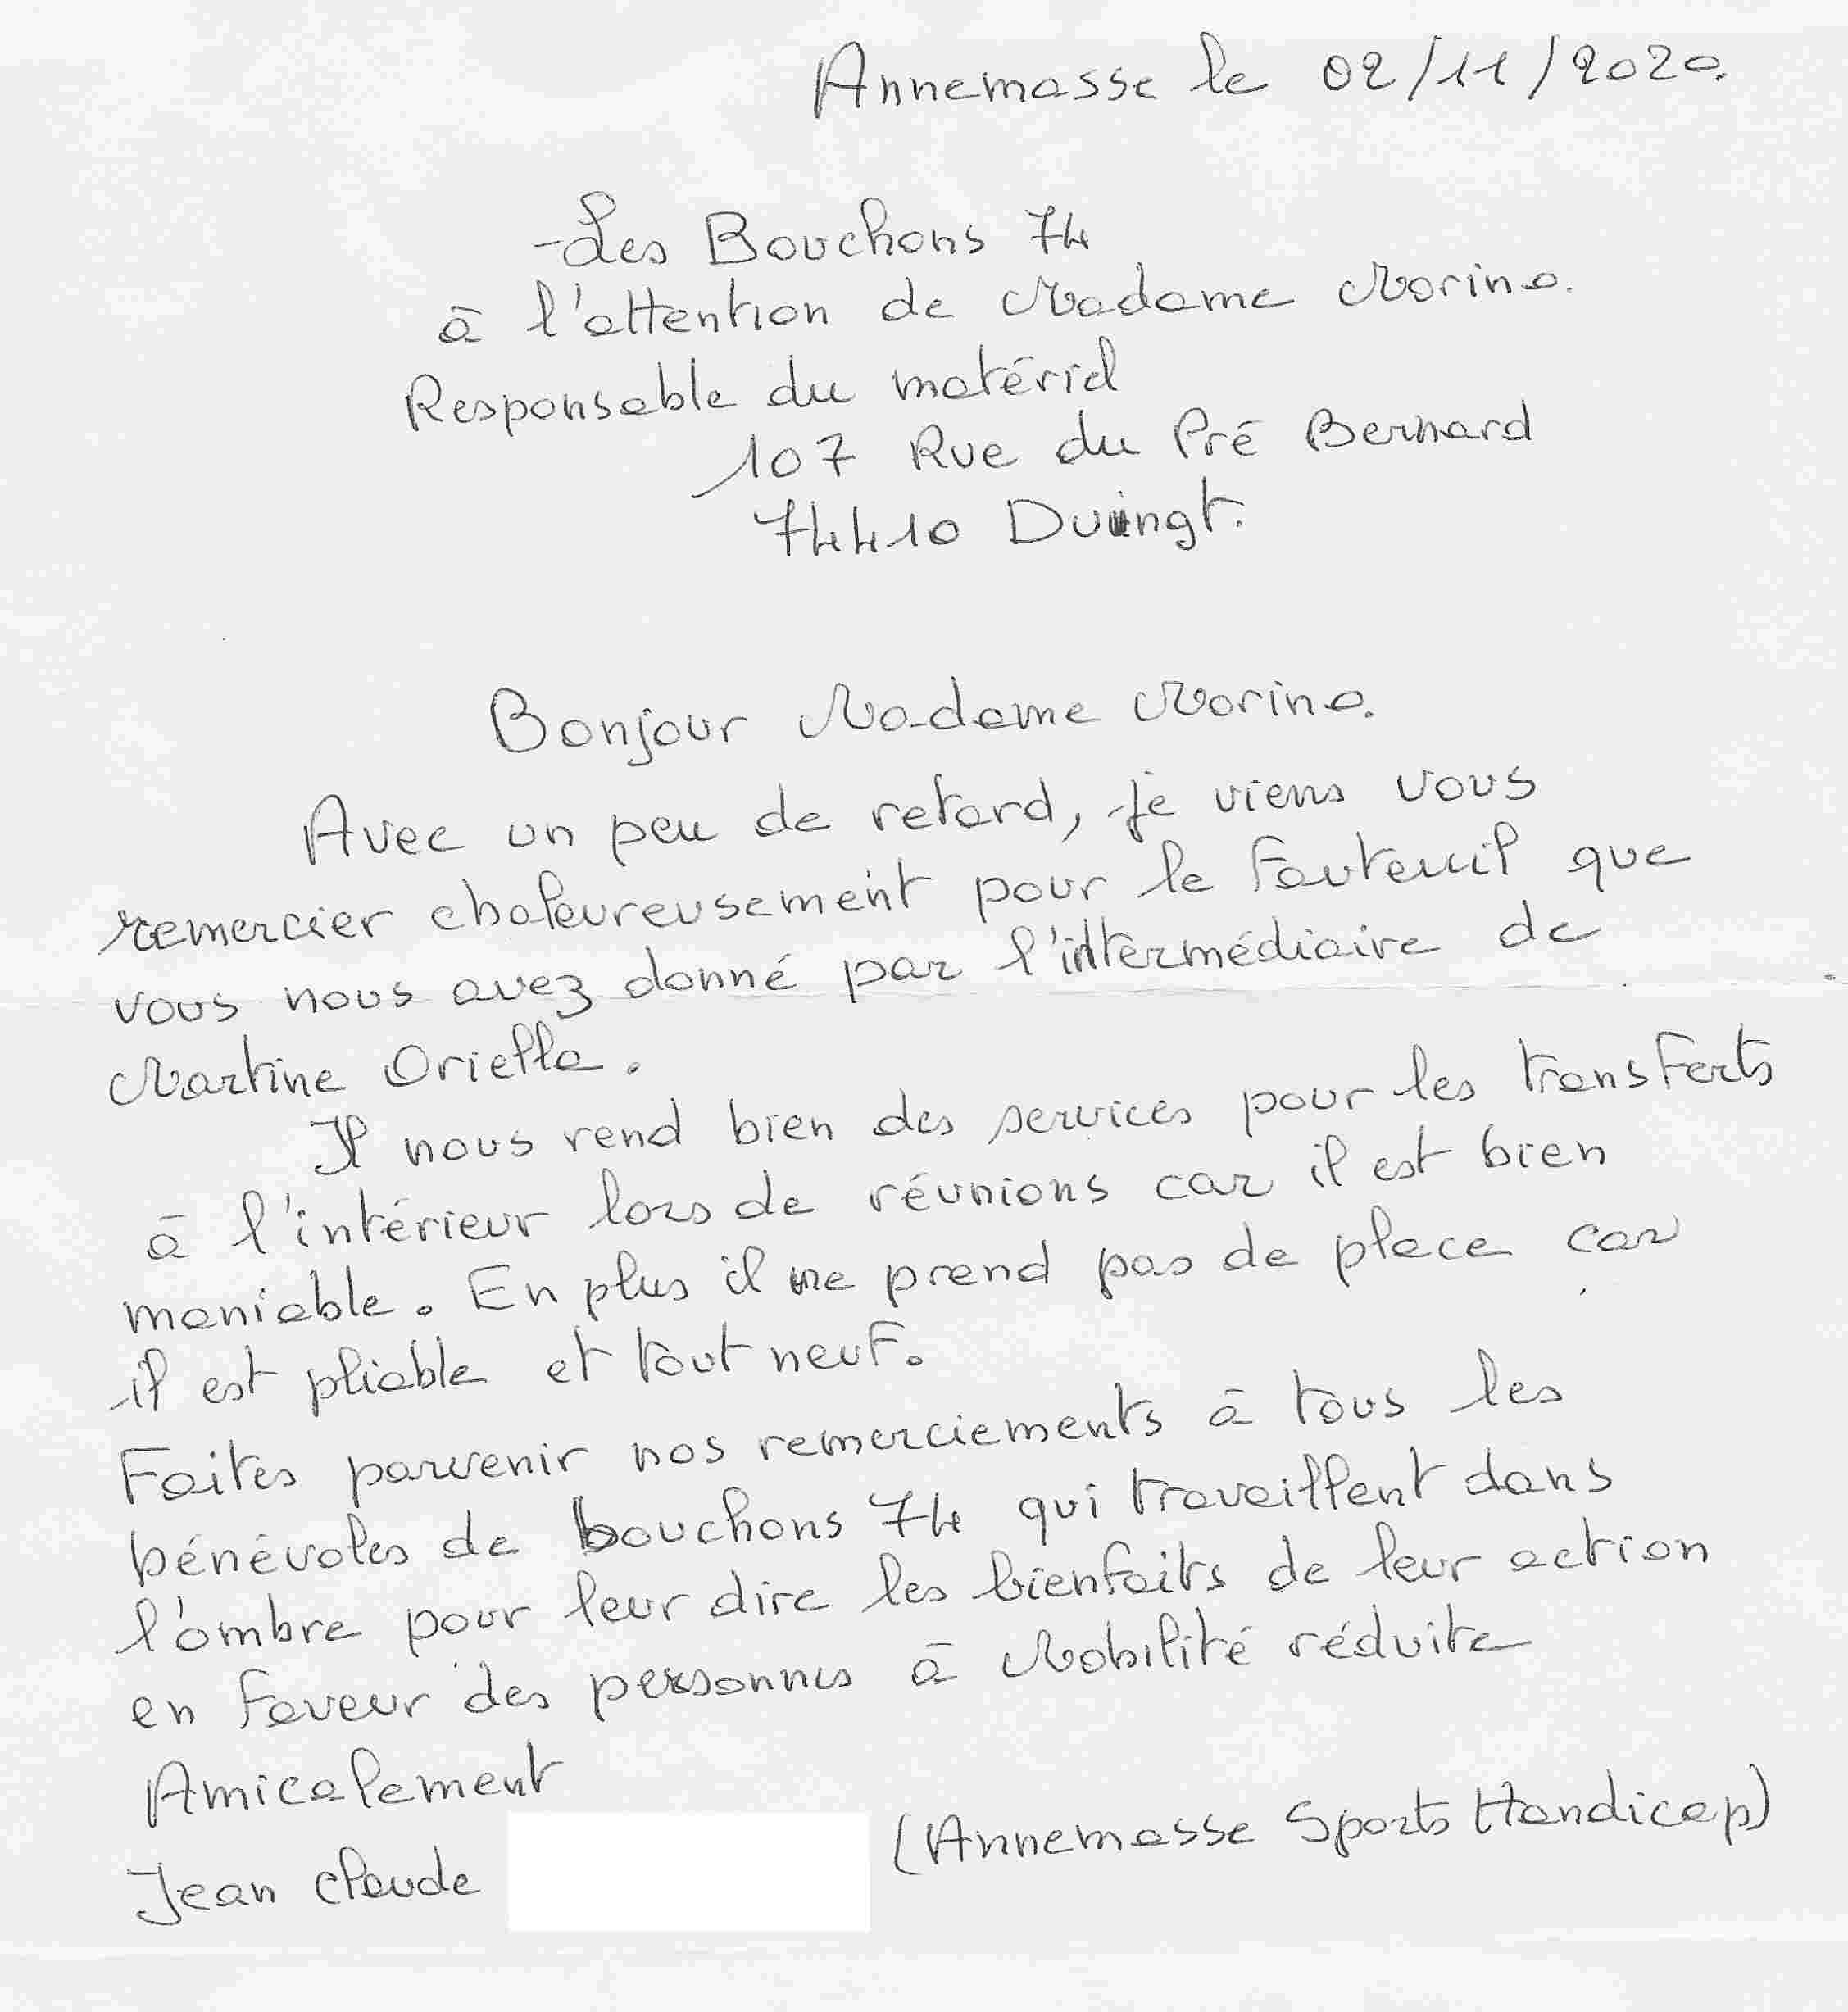 Annemasse le 02/11/2020.
Les Bouchons 74
à l'attention de Madame Morino.
Responsable du matériel
107 Rue du Pré Bernard
74410 Duingt.
Bonjour Madame Morino.
Avec un peu de retard, je viens vous
remercier chaleureusement pour le fauteuil que
vous nous avez donné par l'intermédiaire de
Martine Oriella.
Il nous rend bien des services pour les transferts
à l'intérieur lors de réunions car il est bien
maniable. En plus il ne prend pas de place car
il est pliable et tout neuf.
Faites parvenir nos remerciements à tous les
bénévoles de bouchons 74 qui travaillent dans
l'ombre pour leur dire les bienfaits de leur action
en faveur des personnes à Mobilité réduite
Amicalement
Jean Claude (Annemasse Sports Handicap)